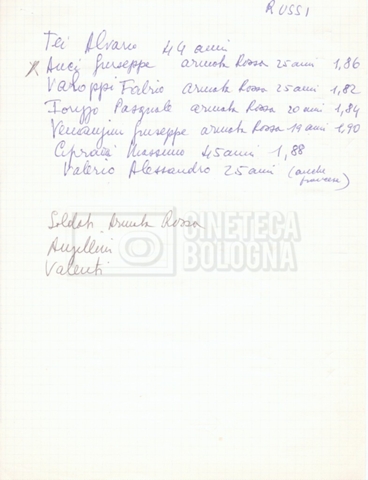 RUSSI
Tei Alvaro 44 anni
x Auci Giuseppe armata Rossa 25 anni 1,86
Varoppi Fabio armata Rossa 25 anni 1,82
Pasquale armata Rossa 20 anni 1,84
Giuseppe armata Rossa 19 anni 1,90
Massimo 45 anni 1,88
Valerio Alessandro 25 anni (anche
Soldati Armata Rossa
Angellini
Valenti
CINETECA
BOLOGNA